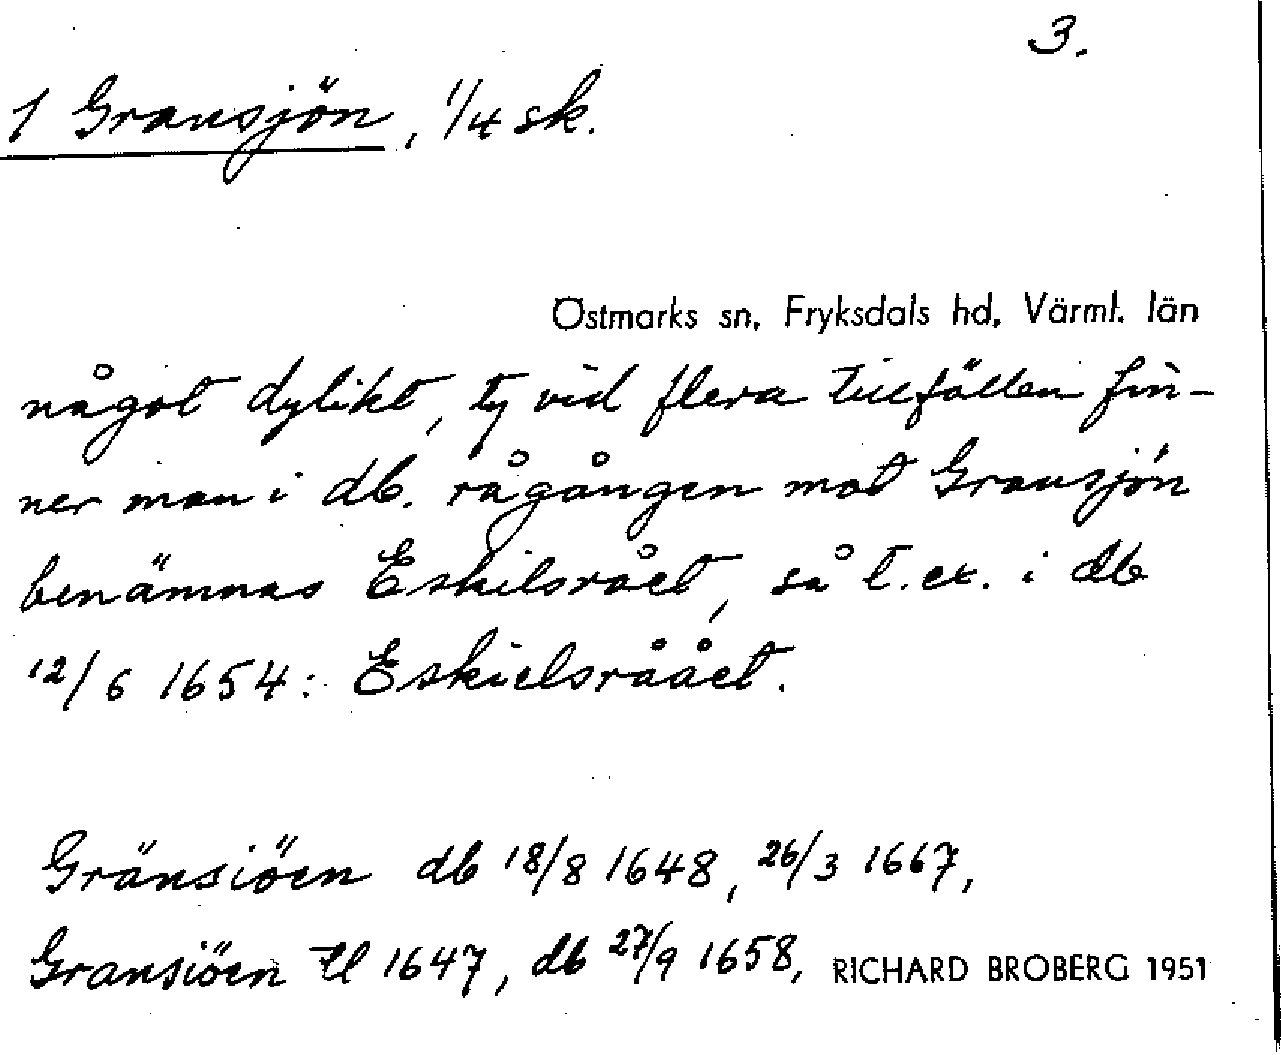 3.
1 Gransjön, 1/4 sk.
Östmarks sn, Fryksdals hd, Värml. län
något dylikt, ty vid flera tillfällen fin-
ner man i db. rågången mot Gransjön
benämnas Eskilsrået, så t.ex. i db
12/6 1654: Eskielsråået.
Gränsiöen db 18/8 1648, 26/3 1667,
Gransiöen tl 1647, db 27/9 1658,
RICHARD BROBERG 1951